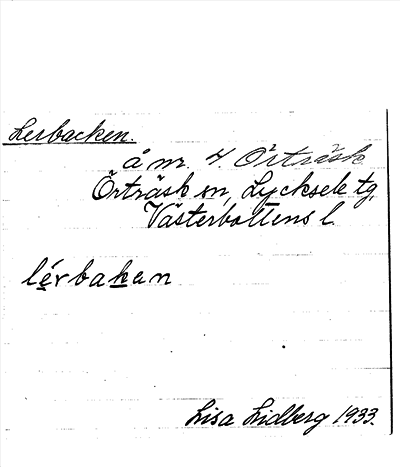 Lerbacken.
å nr. 4 Örträsk
Örträsk sn, Lycksele tg,
Västerbottens l.
lérbakan
Lisa Lidberg 1933.